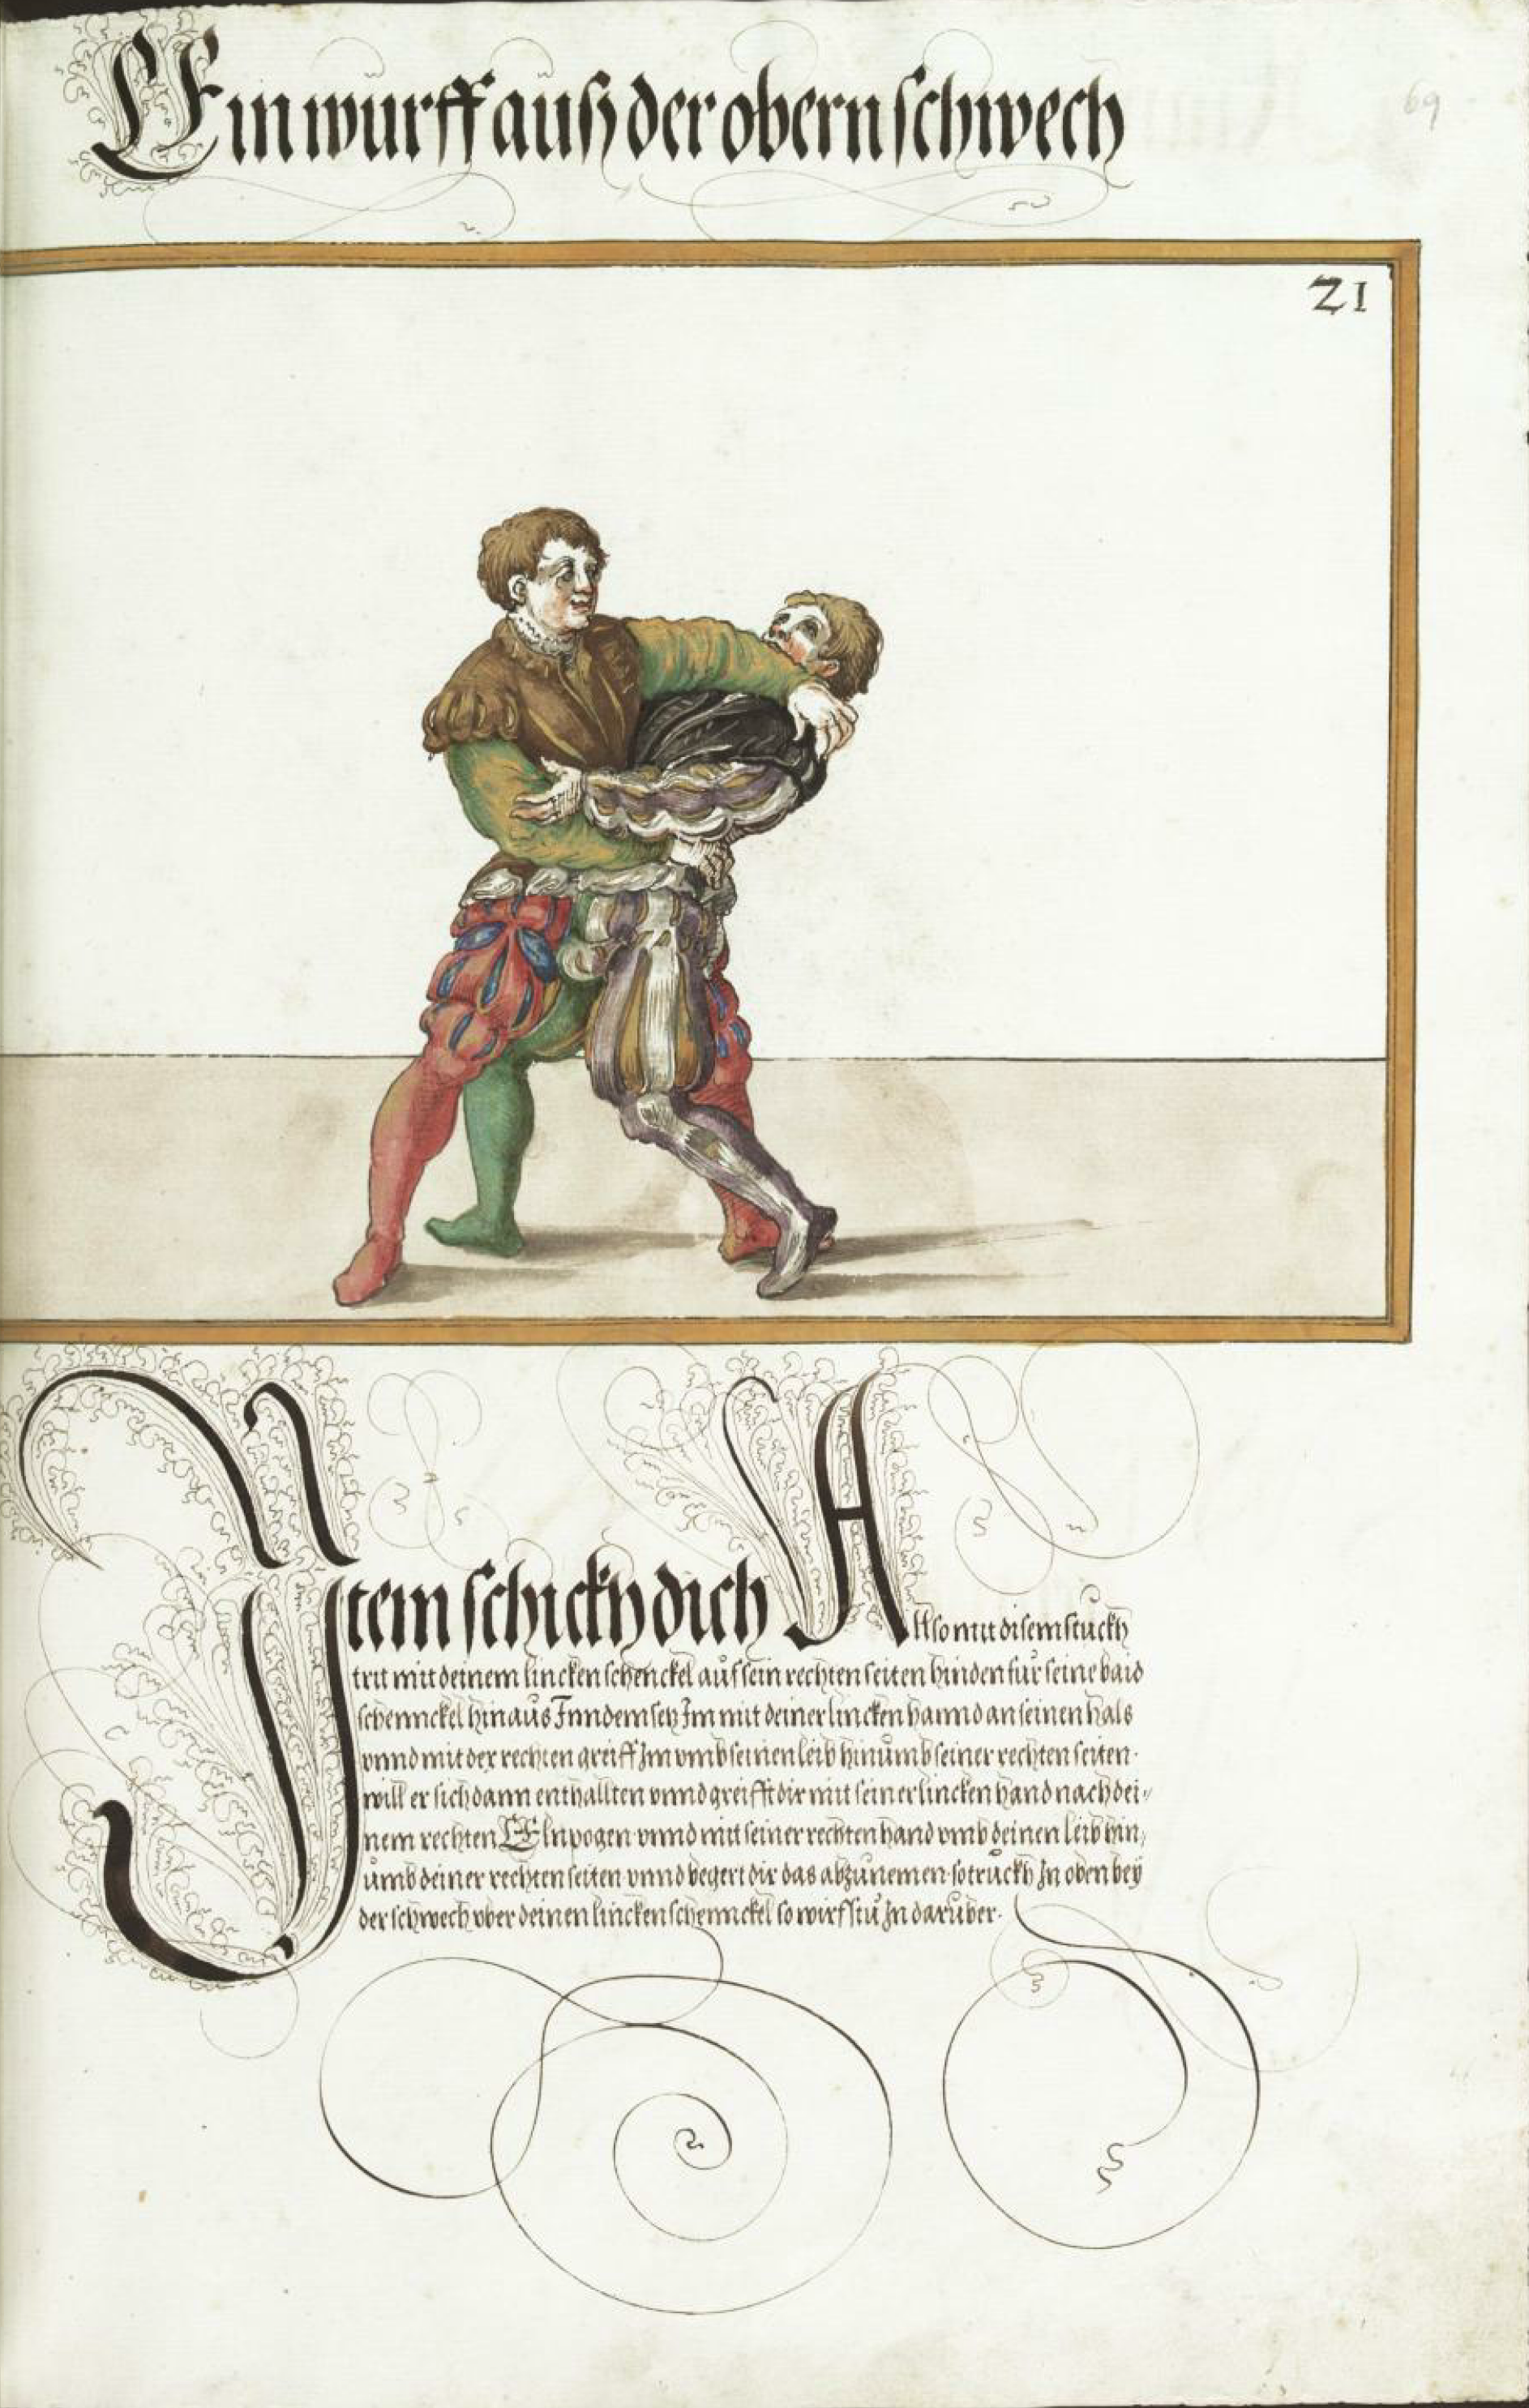 Ein wurff auß der obern schwech
69
21
Item schickh dich Allso mit disem stuckh
trit mit deinem lincken schenckel auf sein rechten seiten hinden für seine baid
schennckel hinaus Inn dem setz Im mit deiner lincken hannd an seinen hals
vnnd mit der rechten greiff Im vmb seinen leib hinumb seiner rechten seiten·
will er sich dann enthallten vnnd greifft dir mit seiner lincken hand nach dei=
nem rechten Elnpogen vnnd mit seiner rechten hand vmb deinen leib hin,
umb deiner rechten seiten vnnd begert dir das abzunemen· so truckh In oben bey
der schwech vber deinen lincken schennckel so wirfstu In darüber·